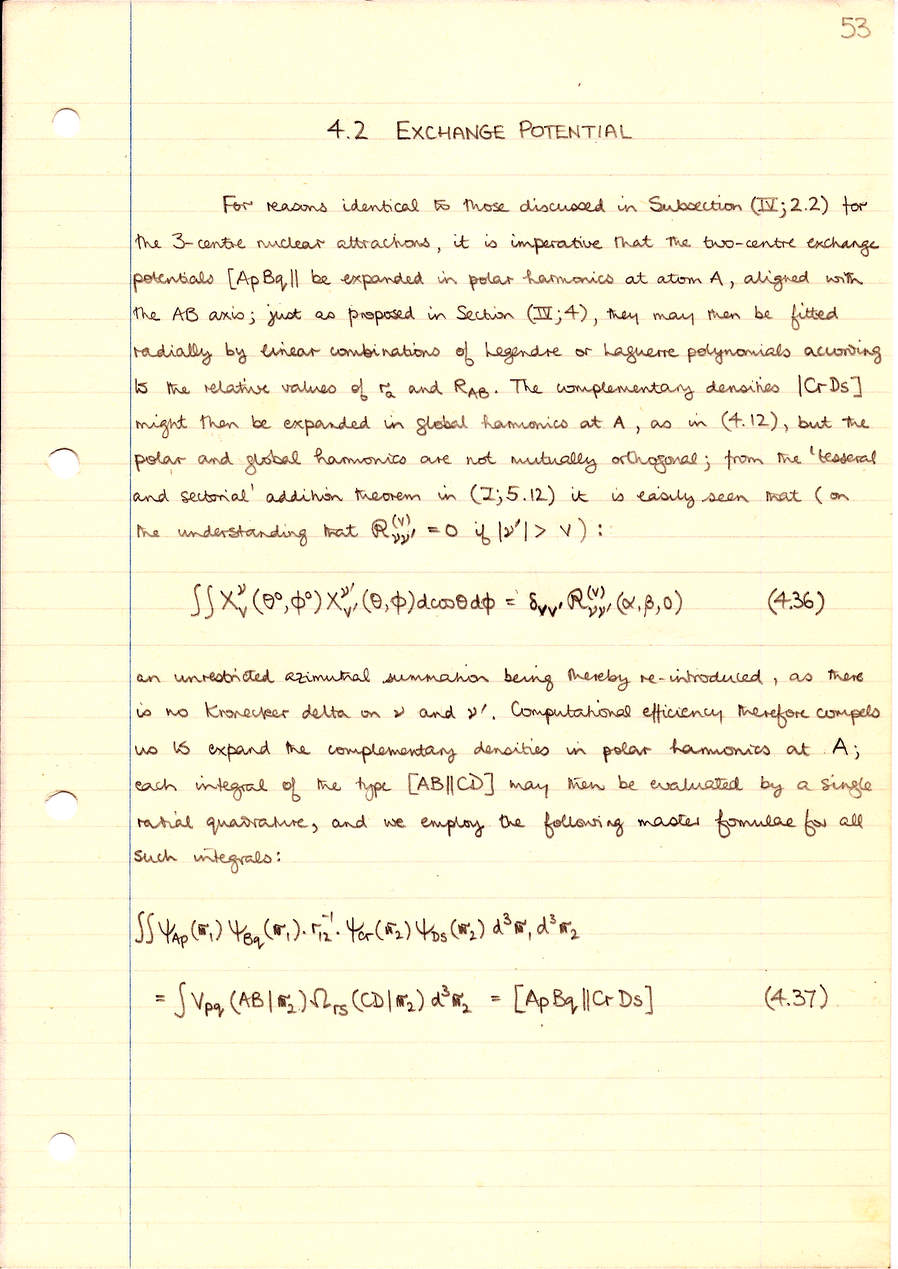 53
4.2 EXCHANGE POTENTIAL
For reasons identical to those discussed in Subsection (IV; 2.2) for
the 3-centre nuclear attractions, it is imperative that the two-centre exchange
potentials [ApBq|| be expanded in polar harmonics at atom A, aligned with
the AB axis; just as proposed in Section (IV; 4), they may then be fitted
radially by linear combinations of Legendre or Laguerre polynomials according
to the relative values of rₐ and R_AB. The complementary densities |CrDs]
might then be expanded in global harmonics at A, as in (4.12), but the
polar and global harmonics are not mutually orthogonal; from the 'tesseral
and sectorial' addition theorem in (I; 5.12) it is easily seen that (on
the understanding that ℝ_νν′^(V) = 0 if |ν′| > V) :
∫∫ X_V^ν (θ°, φ°) X_V′^ν′ (θ, φ) dcosθ dφ = δ_VV′ ℝ_νν′^(V) (α, β, 0) (4.36)
an unrestricted azimuthal summation being thereby re-introduced, as there
is no Kronecker delta on ν and ν′. Computational efficiency therefore compels
us to expand the complementary densities in polar harmonics at A;
each integral of the type [AB||CD] may then be evaluated by a single
radial quadrature, and we employ the following master formulae for all
such integrals:
∫∫ ψ_Ap(𝕣₁) ψ_Bq(𝕣₁) . r₁₂⁻¹ . ψ_Cr(𝕣₂) ψ_Ds(𝕣₂) d³𝕣₁ d³𝕣₂
= ∫ V_pq (AB|𝕣₂) Ω_rs (CD|𝕣₂) d³𝕣₂ = [ApBq||CrDs] (4.37)